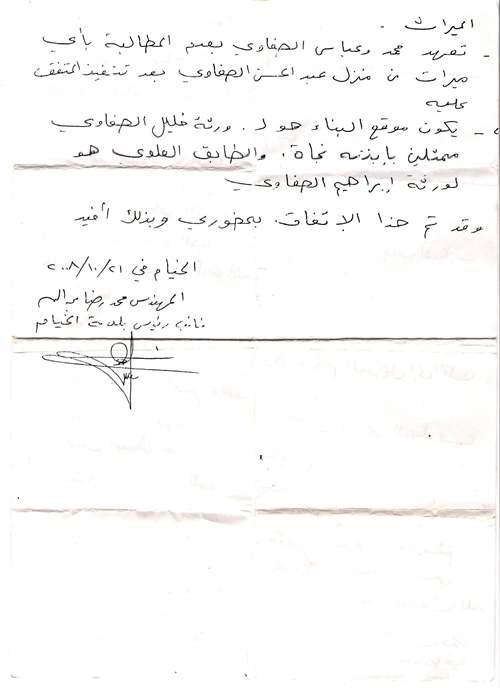 الميراث .
- تعهد محمد وعباس الصفاوي بعدم المطالبة بأي
ميراث من منزل عبد الحسن الصفاوي بعد تنفيذ المتفق
عليه
- يكون موقع البناء هو لـ . ورثة خليل الصفاوي
ممثلين بابنته نجاة . والطابق العلوي هو
لورثة ابراهيم الصفاوي
وقد تم هذا الاتفاق بحضوري وبذلك أفيد
الخيام في ٢٠٠٨/١٠/٢١
المهندس محمد رضا
نائب رئيس بلدية الخيام